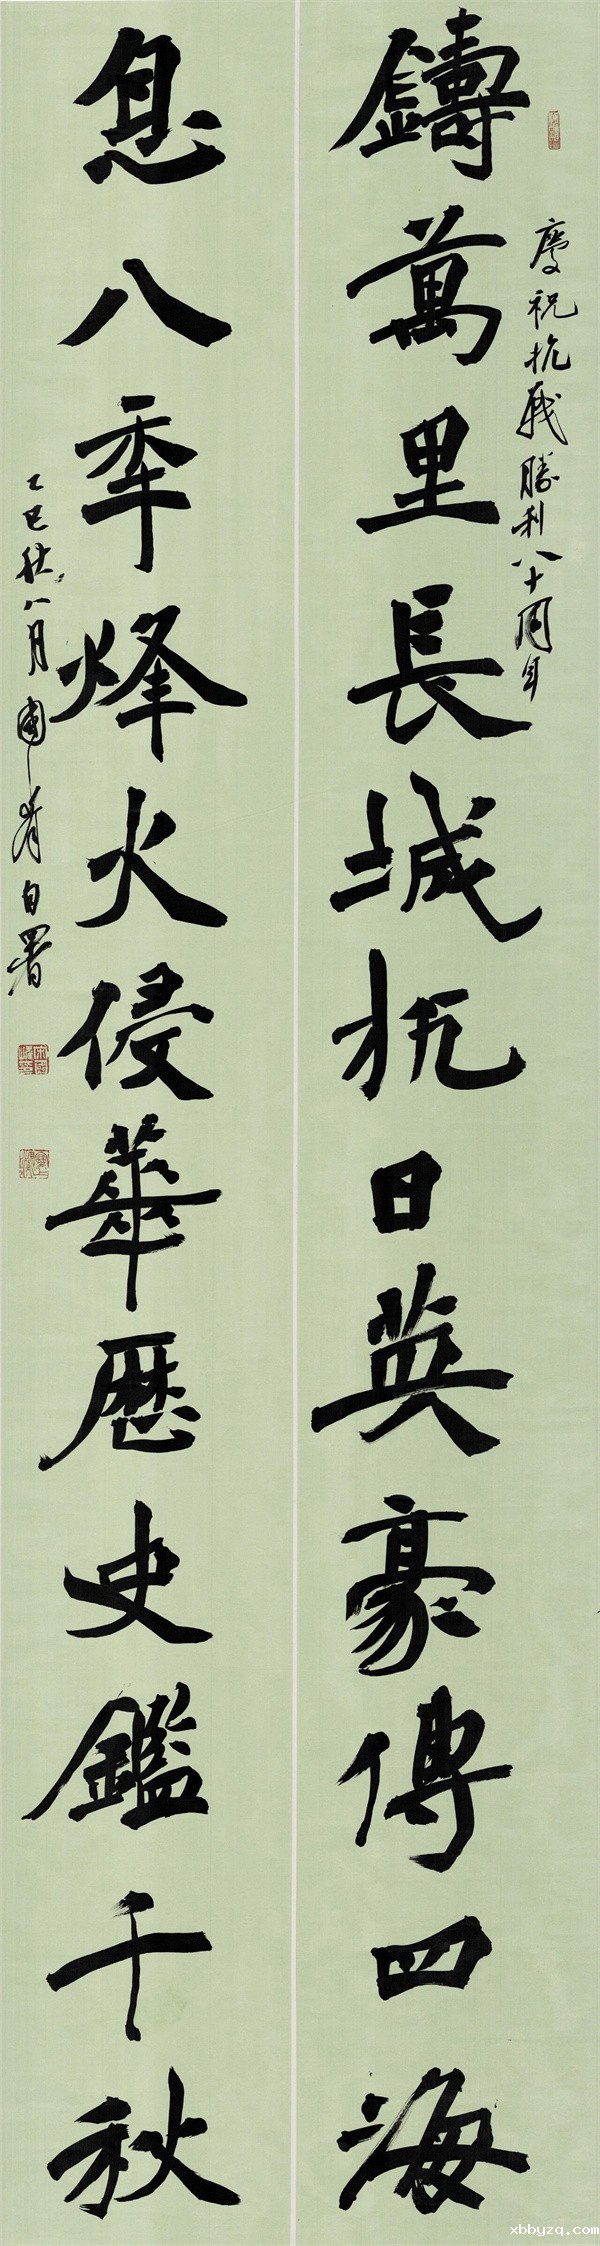 慶祝抗戰勝利八十周年
鑄萬里長城抗日英豪傳四海
息八季烽火侵華歷史鑑千秋
乙巳秋八月國
自署
xbbyzq.com